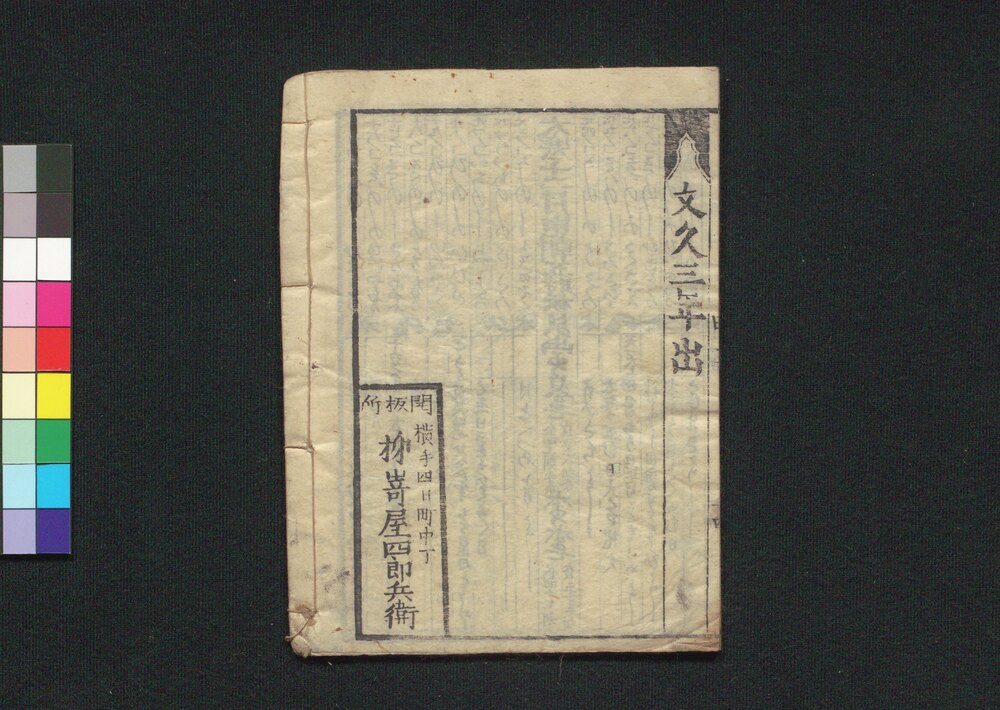 文久三年出
開板所
横手四日町中丁
柳嵜屋四郎兵衛